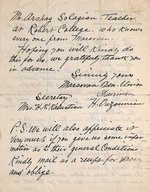 Mr. Arshag Solagian Teacher
at Robert College. who knows
every one from Marsovan
Hoping you will Kindly do
this for us, we gratefully thank you
in advance.
Sincerely yours
Marsovan Ben. Union
Secretary Chairman
Mrs. H. K.
P.S. We will also appreciate it
very much if you give us some infor
mation as to their general condition
Kindly mail us a receipt for
and oblige.